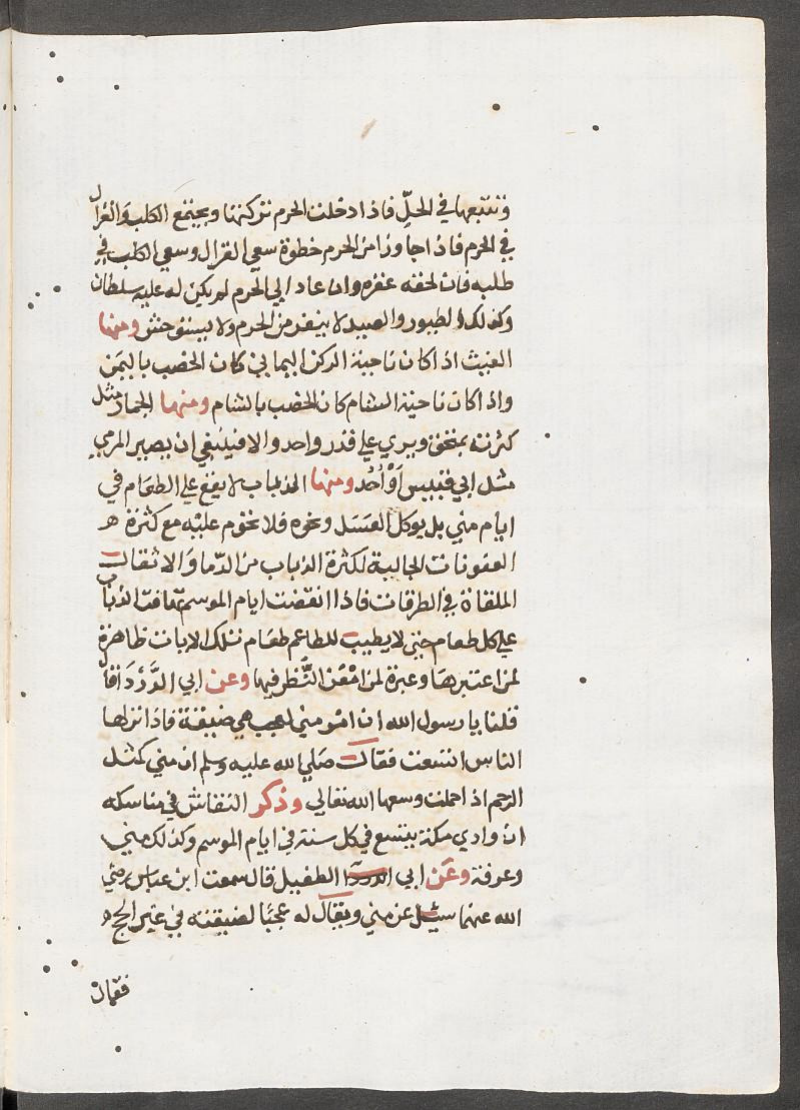 وتتبعها في الحلّ فاذا دخلت الحرم تركتها ويجتمع الكلب والغزال
في الحرم فاذا جاوزا من الحرم خطوة سعي الغزال وسعي الكلب في
طلبه فان لحقه عقره وان عاد الي الحرم لم يكن له عليه سلطان
وكذلك الطيور والصيد لا ينفر من الحرم ولا يستوحش ومنها
الغيث اذا كان ناحية الركن اليماني كان الخصب باليمن
واذا كان ناحية الشام كان الخصب بالشام ومنها الجمار مثل
كثرته يمتحق ويري علي قدر واحد والا فينبغي ان يصير المرمي
مثل ابي قبيس أو أُحُد ومنها الذباب لا يقع علي الطعام في
ايام مني بل يوكل العسل ونحوه فلا تحوم عليه مع كثرة ه
العفونات الجالبة لكثرة الذباب من الدّما والاثقال
الملقاة في الطرقات فاذا انقضت ايام الموسم تهافت الذباب
علي كل طعام حتي لا يطيب للطاعم طعام تلك الايات ظاهرة
لمن اعتبرها وعبرة لمن امْعَن النَّظر فيها وعن ابي الدَّرْدَا قال
قلنا يا رسول الله ان امر مني لعجب هي ضيقة فاذا نزلها
الناس اتسعت فقال صَلي الله عليه وسلم ان مني كمثل
الرحم اذا حملت وسعها الله تعالي وذكر النقاش في مناسكه
ان وادي مكة يتسع في كل سنة في ايام الموسم وكذلك مني
وعرفة وعَن ابي الطفيل قال سمعت ابن عباس رضي
الله عنهما سئل عن مني ويقال له عجبًا لضيقته في غير الحج
فقال